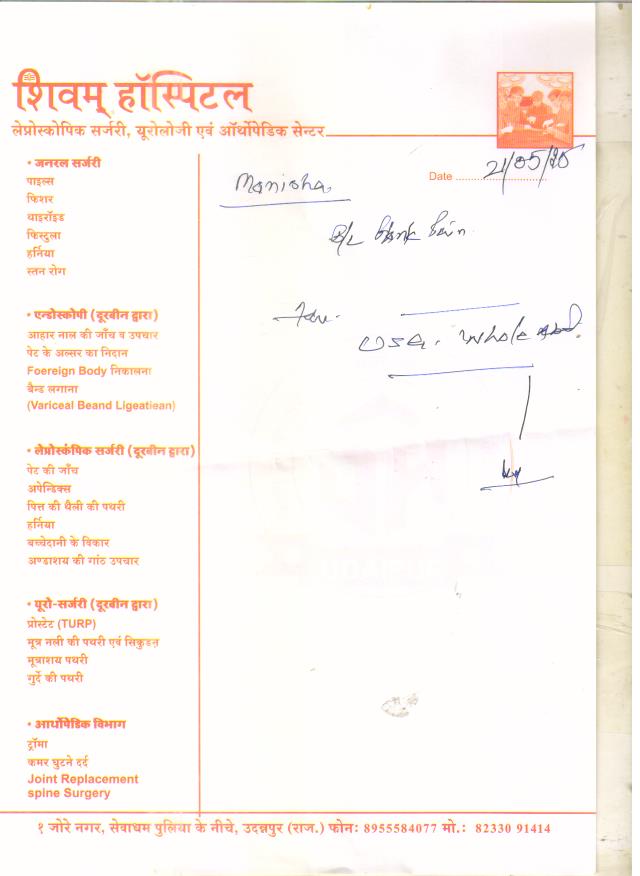 शिवम् हॉस्पिटल
लेप्रोस्कोपिक सर्जरी, यूरोलोजी एवं ऑर्थोपेडिक सेन्टर
• जनरल सर्जरी
पाइल्स
फिशर
थाइरॉइड
फिस्टुला
हर्निया
स्तन रोग
• एन्डोस्कोपी (दूरबीन द्वारा)
आहार नाल की जाँच व उपचार
पेट के अल्सर का निदान
Foereign Body निकालना
बैन्ड लगाना
(Variceal Beand Ligeatiean)
• लेप्रोस्कॉपिक सर्जरी (दूरबीन द्वारा)
पेट की जाँच
अपेन्डिक्स
पित्त की थैली की पथरी
हर्निया
बच्चेदानी के विकार
अण्डाशय की गांठ उपचार
• यूरो-सर्जरी (दूरबीन द्वारा)
प्रोस्टेट (TURP)
मूत्र नली की पथरी एवं सिकुड़न
मूत्राशय पथरी
गुर्दे की पथरी
• आर्थोपेडिक विभाग
ट्रॉमा
कमर घुटने दर्द
Joint Replacement
spine Surgery
Date 21/05/25
Manisha
Flank Pain
Adv.
USG. Whole Abd.
१ जोरे नगर, सेवाधम पुलिया के नीचे, उदयपुर (राज.) फोन: 8955584077 मो.: 82330 91414